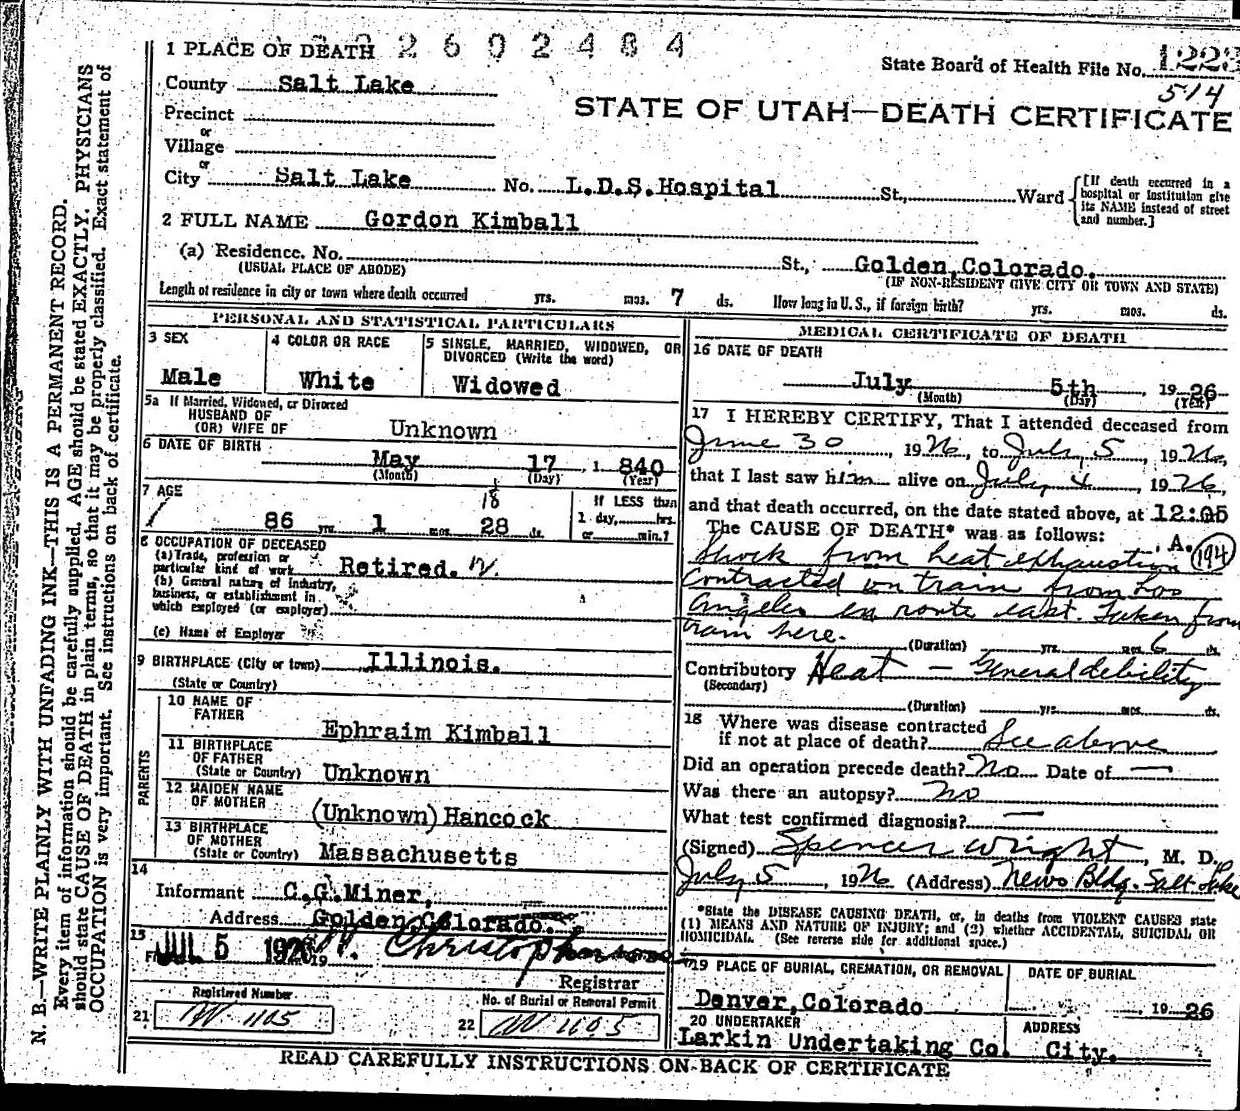 2602484
1 PLACE OF DEATH
State Board of Health File No. 1223
514
County Salt Lake
STATE OF UTAH—DEATH CERTIFICATE
Precinct
or
Village
or
City Salt Lake No. L.D.S.Hospital St., Ward
[If death occurred in a hospital or institution give its NAME instead of street and number.]
2 FULL NAME Gordon Kimball
(a) Residence. No. St., Golden,Colorado.
(USUAL PLACE OF ABODE) (IF NON-RESIDENT GIVE CITY OR TOWN AND STATE)
Length of residence in city or town where death occurred yrs. mos. 7 ds. How long in U. S., if foreign birth? yrs. mos. ds.
PERSONAL AND STATISTICAL PARTICULARS
3 SEX
Male
4 COLOR OR RACE
White
5 SINGLE, MARRIED, WIDOWED, OR DIVORCED (Write the word)
Widowed
5a If Married, Widowed, or Divorced
HUSBAND OF
(OR) WIFE OF Unknown
6 DATE OF BIRTH
May 17 , 1 840
(Month) (Day) (Year)
7 AGE
18
86 yrs. 1 mos. 28 ds.
If LESS than
1 day, hrs.
or min.?
8 OCCUPATION OF DECEASED
(a) Trade, profession or
particular kind of work Retired.
(b) General nature of industry,
business, or establishment in
which employed (or employer)
(c) Name of Employer
9 BIRTHPLACE (City or town) Illinois.
(State or Country)
PARENTS
10 NAME OF
FATHER
Ephraim Kimball
11 BIRTHPLACE
OF FATHER
(State or Country) Unknown
12 MAIDEN NAME
OF MOTHER
(Unknown) Hancock
13 BIRTHPLACE
OF MOTHER
(State or Country) Massachusetts
14
Informant C.G.Miner,
Address Golden,Colorado.
15
JUL 5 1926 19
Christopherson
Registrar
Registered Number
21 1105
No. of Burial or Removal Permit
22 1105
MEDICAL CERTIFICATE OF DEATH
16 DATE OF DEATH
July 5th 19 26
(Month) (Day) (Year)
17 I HEREBY CERTIFY, That I attended deceased from
June 30, 1926, to July 5, 1926,
that I last saw him alive on July 4, 1926,
and that death occurred, on the date stated above, at 12:05
The CAUSE OF DEATH* was as follows: A.
194
Shock from heat exhaustion
contracted on train from Los
Angeles en route east. Taken from
train here.
(Duration) yrs. mos. 6 ds.
Contributory Heat — General debility
(Secondary)
(Duration) yrs. mos. ds.
18 Where was disease contracted
if not at place of death? See above
Did an operation precede death? No Date of —
Was there an autopsy? no
What test confirmed diagnosis? —
(Signed) Spencer Wright, M. D.
July 5, 1926 (Address) News Bldg. Salt Lake
*State the DISEASE CAUSING DEATH, or, in deaths from VIOLENT CAUSES state
(1) MEANS AND NATURE OF INJURY; and (2) whether ACCIDENTAL, SUICIDAL OR
HOMICIDAL. (See reverse side for additional space.)
19 PLACE OF BURIAL, CREMATION, OR REMOVAL
Denver,Colorado
DATE OF BURIAL
19 26
20 UNDERTAKER
Larkin Undertaking Co.
ADDRESS
City.
READ CAREFULLY INSTRUCTIONS ON BACK OF CERTIFICATE
N. B.—WRITE PLAINLY WITH UNFADING INK—THIS IS A PERMANENT RECORD.
Every item of information should be carefully supplied. AGE should be stated EXACTLY. PHYSICIANS
should state CAUSE OF DEATH in plain terms, so that it may be properly classified. Exact statement of
OCCUPATION is very important. See instructions on back of certificate.